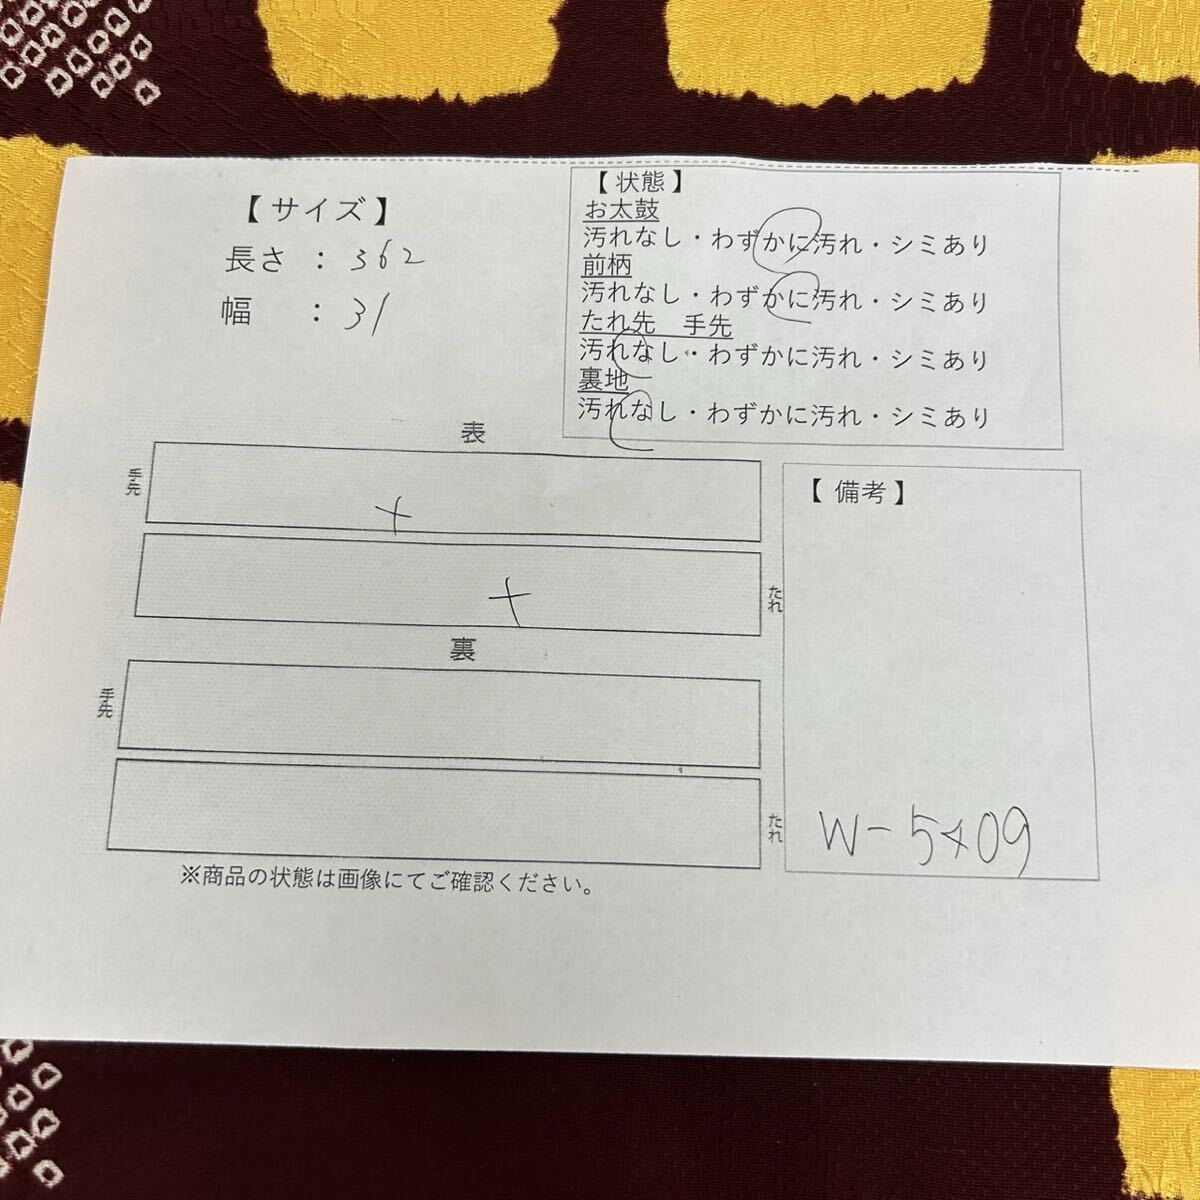 【サイズ】
長さ：362
幅：31
【状態】
お太鼓
汚れなし・わずかに汚れ・シミあり
前柄
汚れなし・わずかに汚れ・シミあり
たれ先　手先
汚れなし・わずかに汚れ・シミあり
裏地
汚れなし・わずかに汚れ・シミあり
表
手先
たれ
裏
手先
たれ
※商品の状態は画像にてご確認ください。
【備考】
W-5409